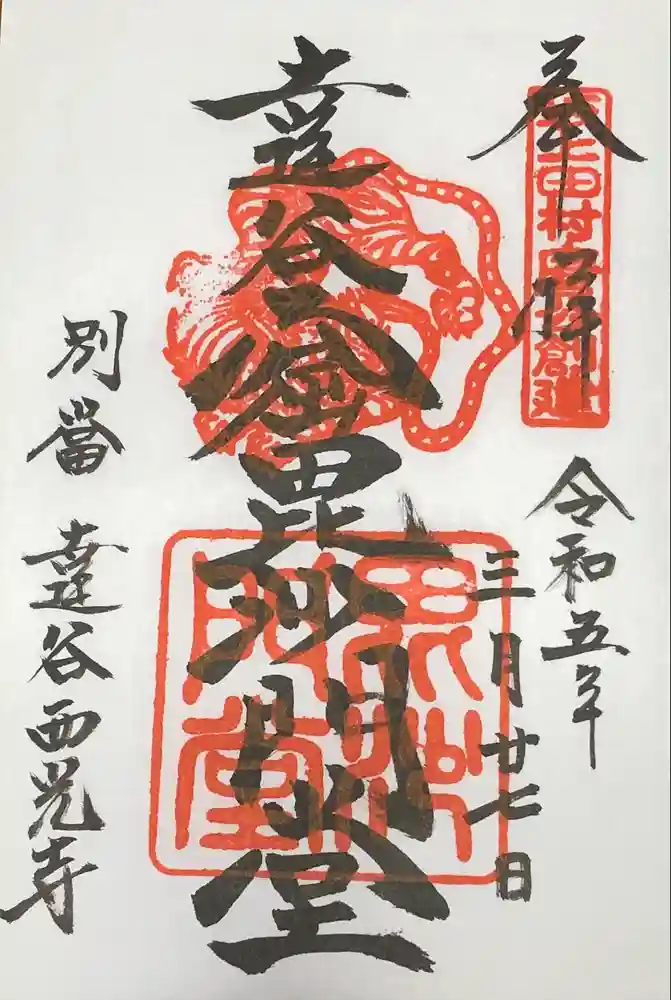 奉拝
坂上田村 創建
令和五年
三月廿七日
達谷窟毘沙門堂
毘沙
門堂
別當 達谷西光寺